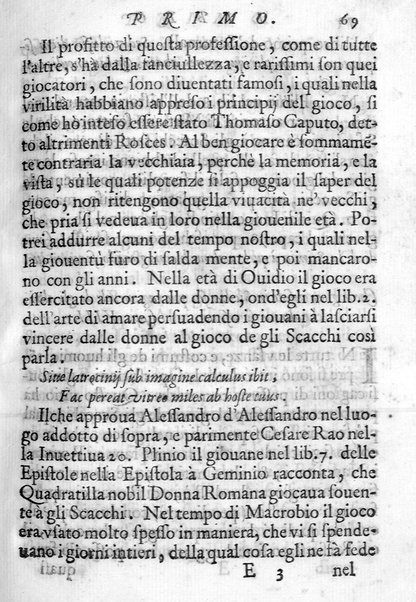 PRIMO. 69
Il profitto di questa professione, come di tutte
l'altre, s'hà dalla fanciullezza, e rarissimi son quei
giocatori, che sono diuentati famosi, i quali nella
virilità habbiano appreso i principij del gioco, si
come hò inteso essere stato Thomaso Caputo, det-
to altrimenti Rosces. Al ben giocare è sommamē-
te contraria la vecchiaia, perche la memoria, e la
vista, sù le quali potenze si appoggia il saper del
gioco, non ritengono quella viuacità ne' vecchi,
che pria si vedeua in loro nella giouenile età. Po-
trei addurre alcuni del tempo nostro, i quali nel-
la giouentù furo di salda mente, e poi mancaro-
no con gli anni. Nella età di Ouidio il gioco era
essercitato ancora dalle donne, ond'egli nel lib. 2.
dell'arte di amare persuadendo i giouani à lasciarsi
vincere dalle donne al gioco de gli Scacchi così
parla.
Siue latrocinij sub imagine calculus ibit,
Fac pereat vitreo miles ab hoste tuus.
Ilche approua Alessandro d'Alessandro nel luo-
go addotto di sopra, e parimente Cesare Rao nel-
la Inuettiua 20. Plinio il giouane nel lib. 7. delle
Epistole nella Epistola à Geminio racconta, che
Quadratilla nobil Donna Romana giocaua souen-
te à gli Scacchi. Nel tempo di Macrobio il gioco
era vsato molto spesso in maniera, che vi si spende-
uano i giorni intieri, della qual cosa egli ne fà fede
E 3 nel